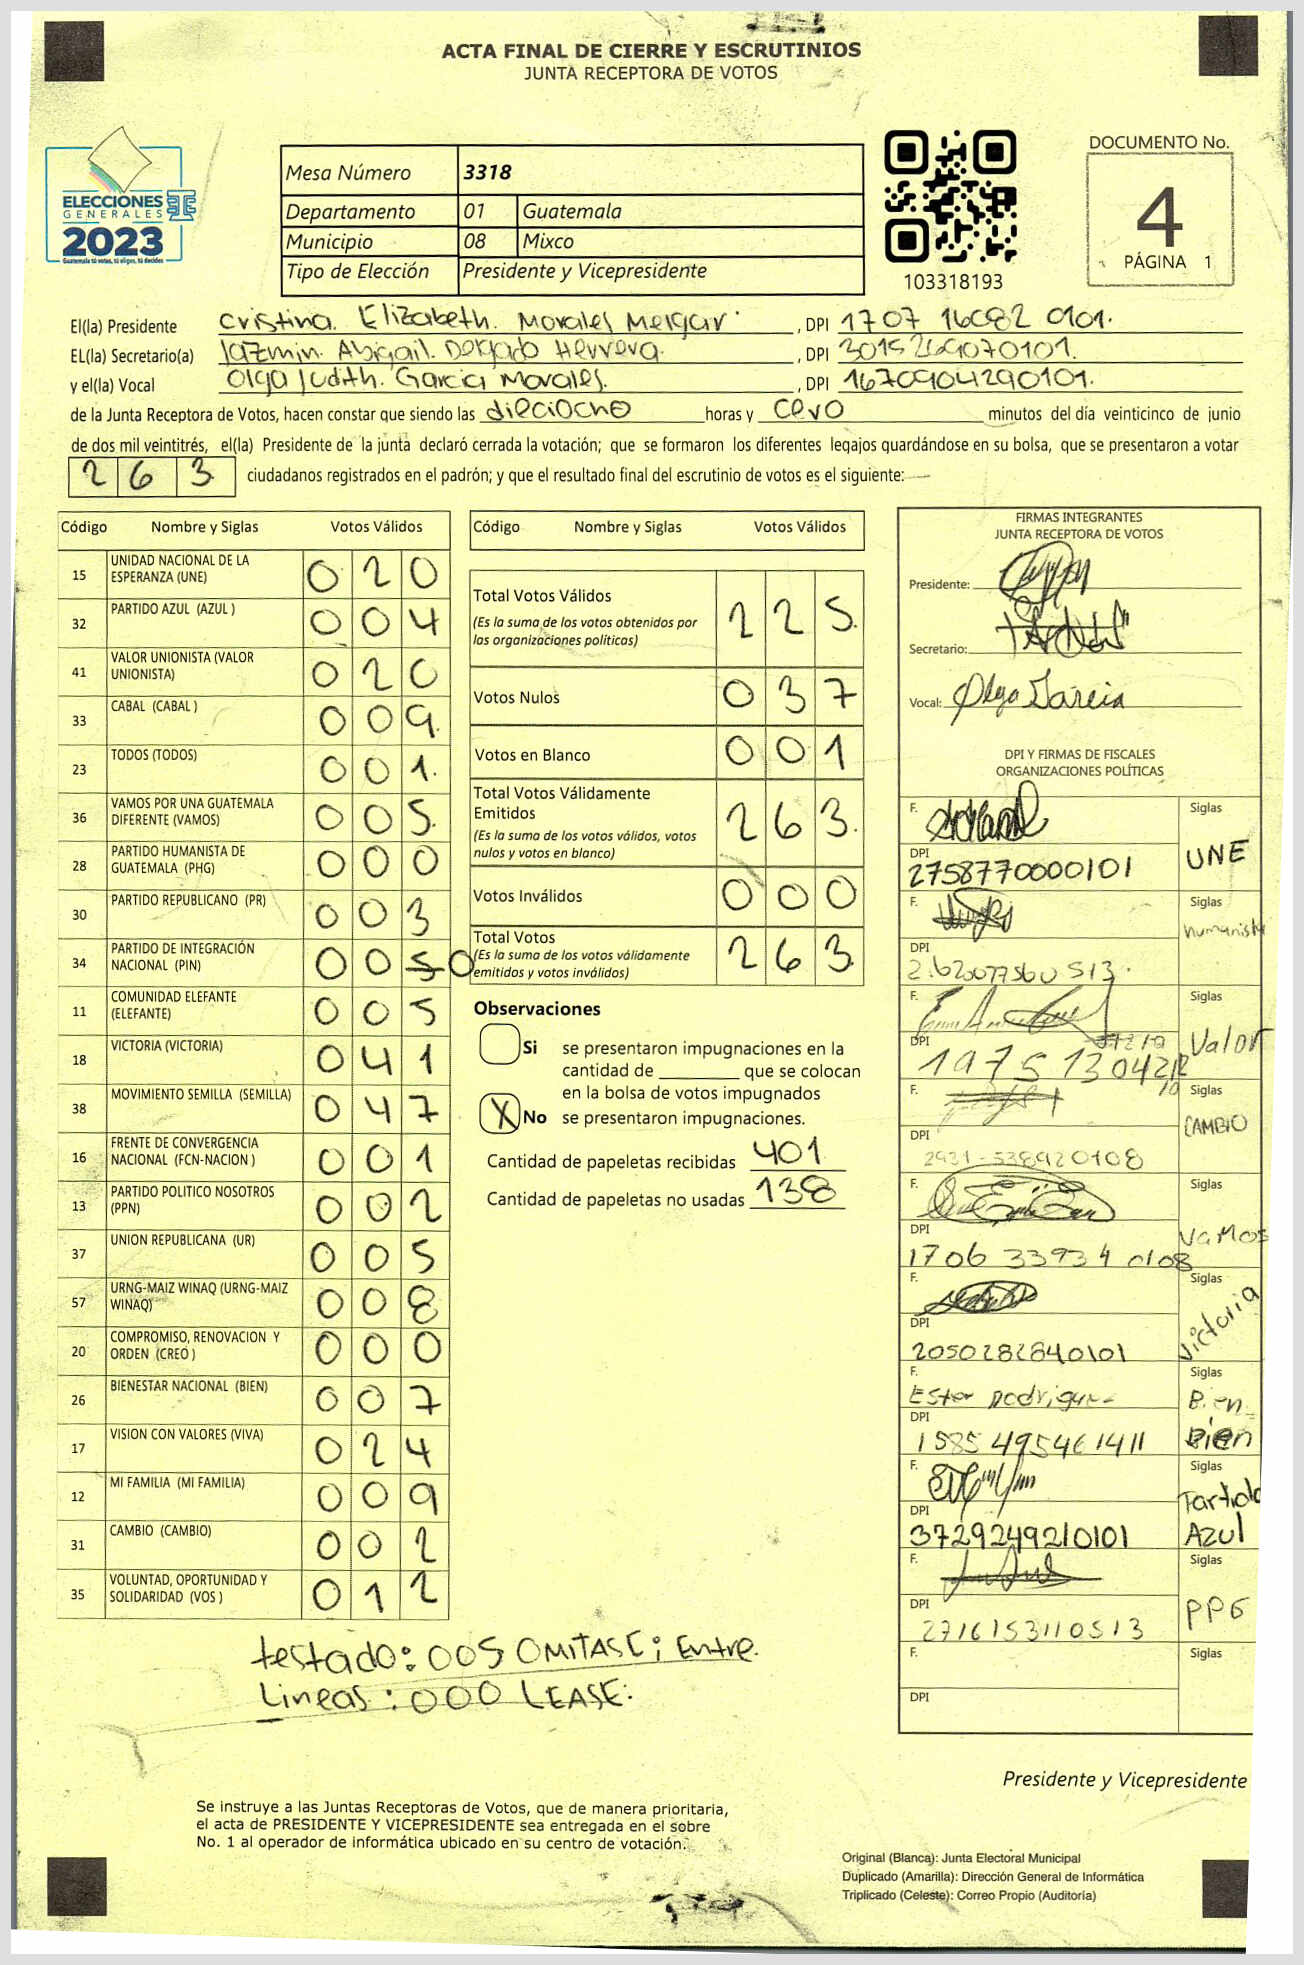 ACTA FINAL DE CIERRE Y ESCRUTINIOS
JUNTA RECEPTORA DE VOTOS
ELECCIONES
GENERALES
2023
Guatemala tú votas, tú eliges, tú decides
Mesa Número 3318
Departamento 01 Guatemala
Municipio 08 Mixco
Tipo de Elección Presidente y Vicepresidente
103318193
DOCUMENTO No.
4
PÁGINA 1
El(la) Presidente Cristina Elizabeth Morales Melgar, DPI 1707 16082 0101.
EL(la) Secretario(a) Jazmin Abigail Delgado Herrera, DPI 3015269070101.
y el(la) Vocal Olga Judith García Morales, DPI 1670904290101.
de la Junta Receptora de Votos, hacen constar que siendo las dieciocho horas y cero minutos del día veinticinco de junio
de dos mil veintitrés, el(la) Presidente de la junta declaró cerrada la votación; que se formaron los diferentes legajos guardándose en su bolsa, que se presentaron a votar
263 ciudadanos registrados en el padrón; y que el resultado final del escrutinio de votos es el siguiente:
Código Nombre y Siglas Votos Válidos
15 UNIDAD NACIONAL DE LA ESPERANZA (UNE) 020
32 PARTIDO AZUL (AZUL ) 004
41 VALOR UNIONISTA (VALOR UNIONISTA) 020
33 CABAL (CABAL ) 009
23 TODOS (TODOS) 001
36 VAMOS POR UNA GUATEMALA DIFERENTE (VAMOS) 005
28 PARTIDO HUMANISTA DE GUATEMALA (PHG) 000
30 PARTIDO REPUBLICANO (PR) 003
34 PARTIDO DE INTEGRACIÓN NACIONAL (PIN) 005 0
11 COMUNIDAD ELEFANTE (ELEFANTE) 005
18 VICTORIA (VICTORIA) 041
38 MOVIMIENTO SEMILLA (SEMILLA) 047
16 FRENTE DE CONVERGENCIA NACIONAL (FCN-NACION ) 001
13 PARTIDO POLITICO NOSOTROS (PPN) 002
37 UNION REPUBLICANA (UR) 005
57 URNG-MAIZ WINAQ (URNG-MAIZ WINAQ) 008
20 COMPROMISO, RENOVACION Y ORDEN (CREO ) 000
26 BIENESTAR NACIONAL (BIEN) 007
17 VISION CON VALORES (VIVA) 024
12 MI FAMILIA (MI FAMILIA) 009
31 CAMBIO (CAMBIO) 002
35 VOLUNTAD, OPORTUNIDAD Y SOLIDARIDAD (VOS ) 012
testado: 005 OMITASE; Entre
Lineas: 000 LEASE.
Código Nombre y Siglas Votos Válidos
Total Votos Válidos 225
(Es la suma de los votos obtenidos por
las organizaciones políticas)
Votos Nulos 037
Votos en Blanco 001
Total Votos Válidamente
Emitidos 263
(Es la suma de los votos válidos, votos
nulos y votos en blanco)
Votos Inválidos 000
Total Votos 263
(Es la suma de los votos válidamente
emitidos y votos inválidos)
Observaciones
Si se presentaron impugnaciones en la
cantidad de ________ que se colocan
en la bolsa de votos impugnados
X No se presentaron impugnaciones.
Cantidad de papeletas recibidas 401
Cantidad de papeletas no usadas 138
FIRMAS INTEGRANTES
JUNTA RECEPTORA DE VOTOS
Presidente:
Secretario:
Vocal: Olga García
DPI Y FIRMAS DE FISCALES
ORGANIZACIONES POLÍTICAS
F. Siglas
DPI 2758770000101 UNE
F. Siglas
DPI humanista
F. Siglas
DPI Valor
F. Siglas
DPI CAMBIO
F. Siglas
DPI 1706 33934 0108 Vamos
F. Siglas
DPI 2050282840101 Victoria
F. Ester Rodriguez Siglas
Bien
DPI 1585495461411 Bien
F. Siglas
Partido
DPI 3729249210101 Azul
F. Siglas
DPI 2716153110513 PPG
F. Siglas
DPI
Presidente y Vicepresidente
Se instruye a las Juntas Receptoras de Votos, que de manera prioritaria,
el acta de PRESIDENTE Y VICEPRESIDENTE sea entregada en el sobre
No. 1 al operador de informática ubicado en su centro de votación.
Original (Blanca): Junta Electoral Municipal
Duplicado (Amarilla): Dirección General de Informática
Triplicado (Celeste): Correo Propio (Auditoría)